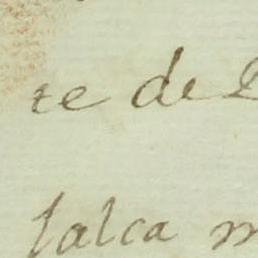 te de
salca